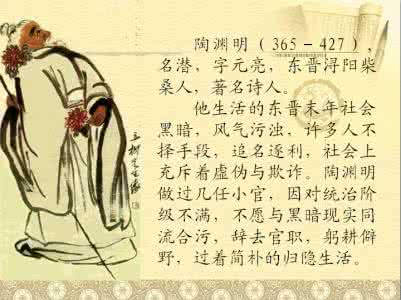 陶渊明（365－427），
名潜，字元亮，东晋浔阳柴
桑人，著名诗人。
他生活的东晋末年社会
黑暗，风气污浊，许多人不
择手段，追名逐利，社会上
充斥着虚伪与欺诈。陶渊明
做过几任小官，因对统治阶
级不满，不愿与黑暗现实同
流合污，辞去官职，躬耕僻
野，过着简朴的归隐生活。